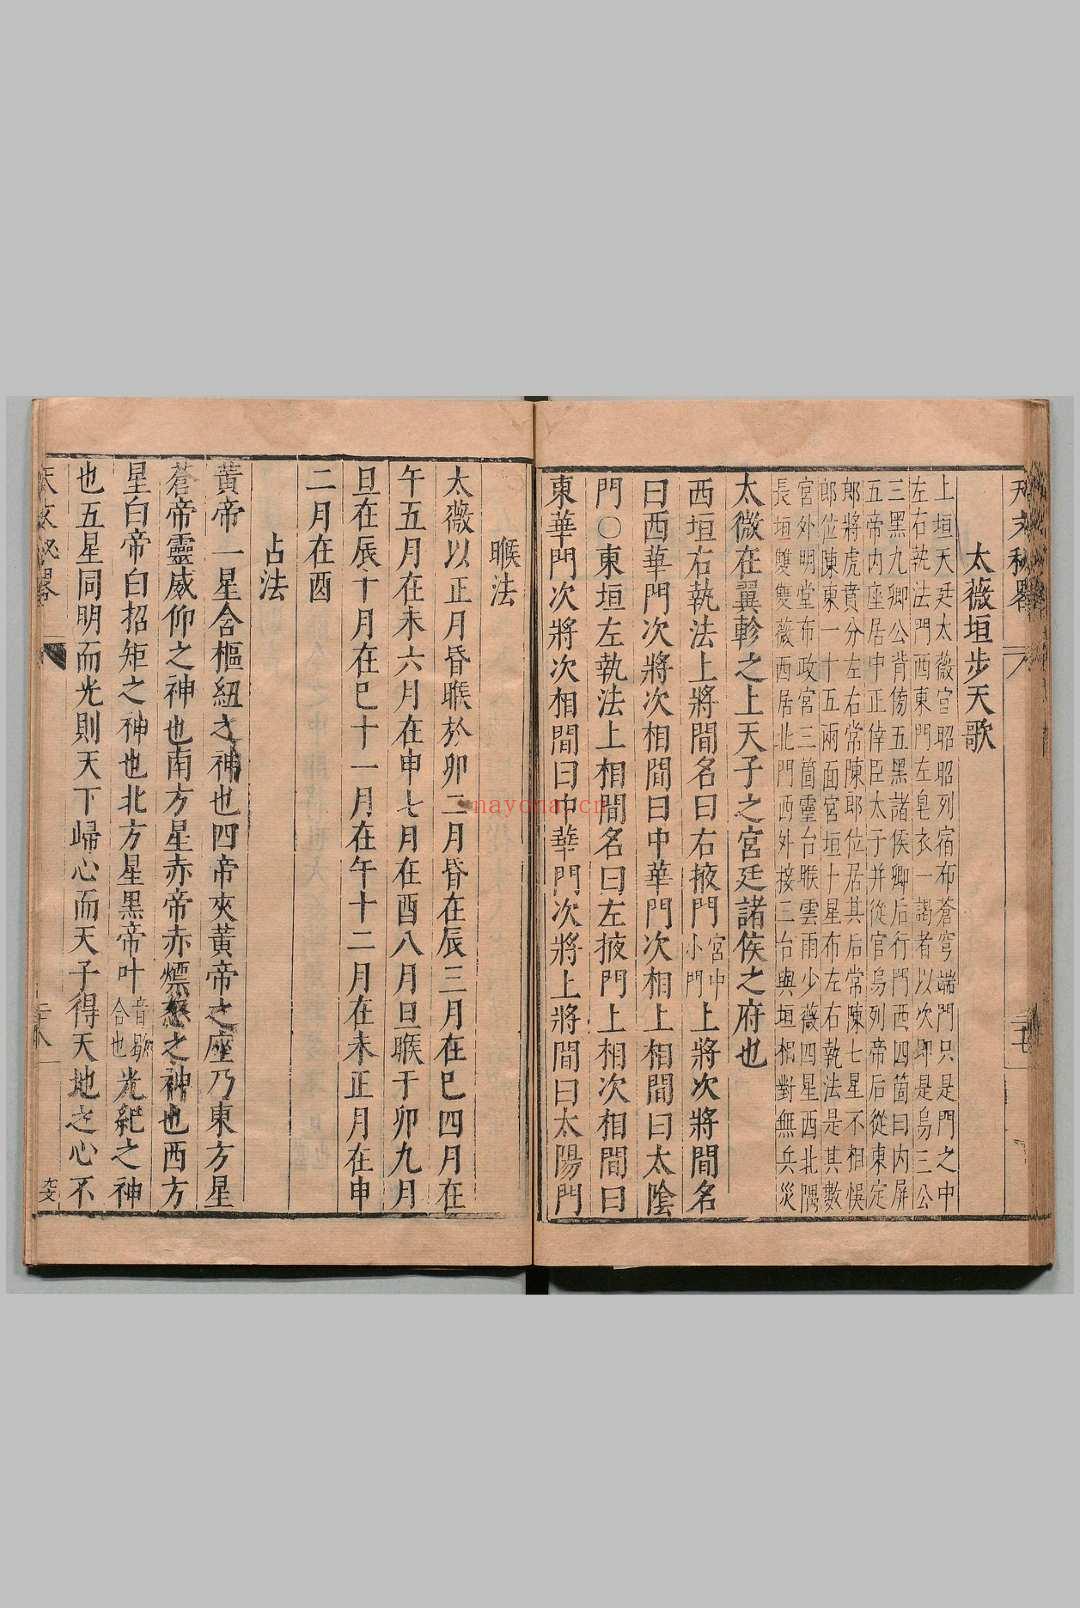 天文秘畧
太薇垣步天歌
上垣天廷太薇宮昭昭列宿布蒼穹端門只是門之中
左右執法門西東門左皂衣一謁者以次即是烏三公
三黑九卿公背傍五黑諸侯卿后行門西四箇曰内屏
五帝内座居中正倖臣太子并從官烏列帝后從東定
郎將虎賁分左右常陳郎位居其后常陳七星不相悞
郎位陳東一十五兩面宮垣十星布左右執法是其數
宮外明堂布政宮三箇靈台㬋雲雨少薇四星西北隅
長垣雙雙薇西居北門西外接三台與垣相對無兵災
太微在翼軫之上天子之宮廷諸侯之府也
西垣右執法上將間名曰右掖門宮中小門上將次將間名
曰西華門次將次相間曰中華門次相上相間曰太隂
門○東垣左執法上相間名曰左掖門上相次相間曰
東華門次將次相間曰中華門次將上將間曰太陽門
㬋法
太薇以正月昏㬋於卯二月昏在辰三月在巳四月在
午五月在未六月在申七月在酉八月旦㬋于卯九月
旦在辰十月在巳十一月在午十二月在未正月在申
二月在酉
占法
黃帝一星含樞紐之神也四帝夾黃帝之座乃東方星
蒼帝靈威仰之神也南方星赤帝赤熛怒之神也西方
星白帝白招矩之神也北方星黑帝叶音勰合也光紀之神
也五星同明而光則天下歸心而天子得天地之心不
天文秘畧